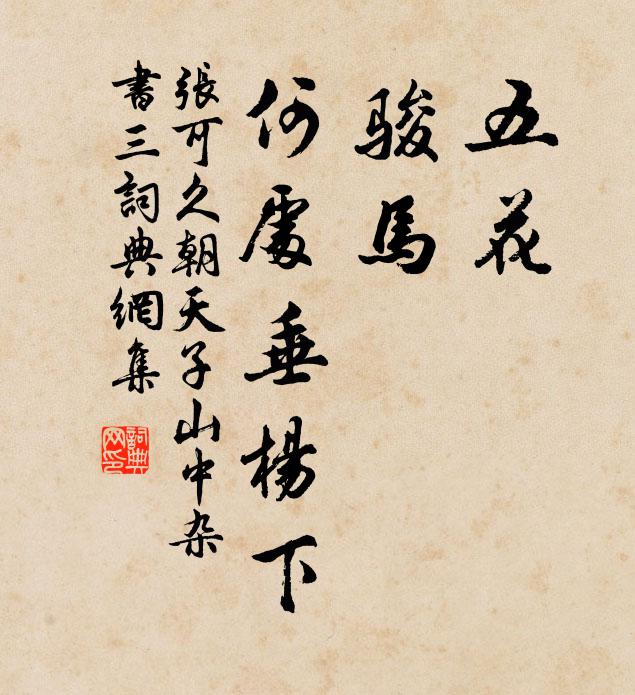 五花
骏馬
何處垂楊下
張可久朝天子山中杂
書三詞典網集
詞典
网印